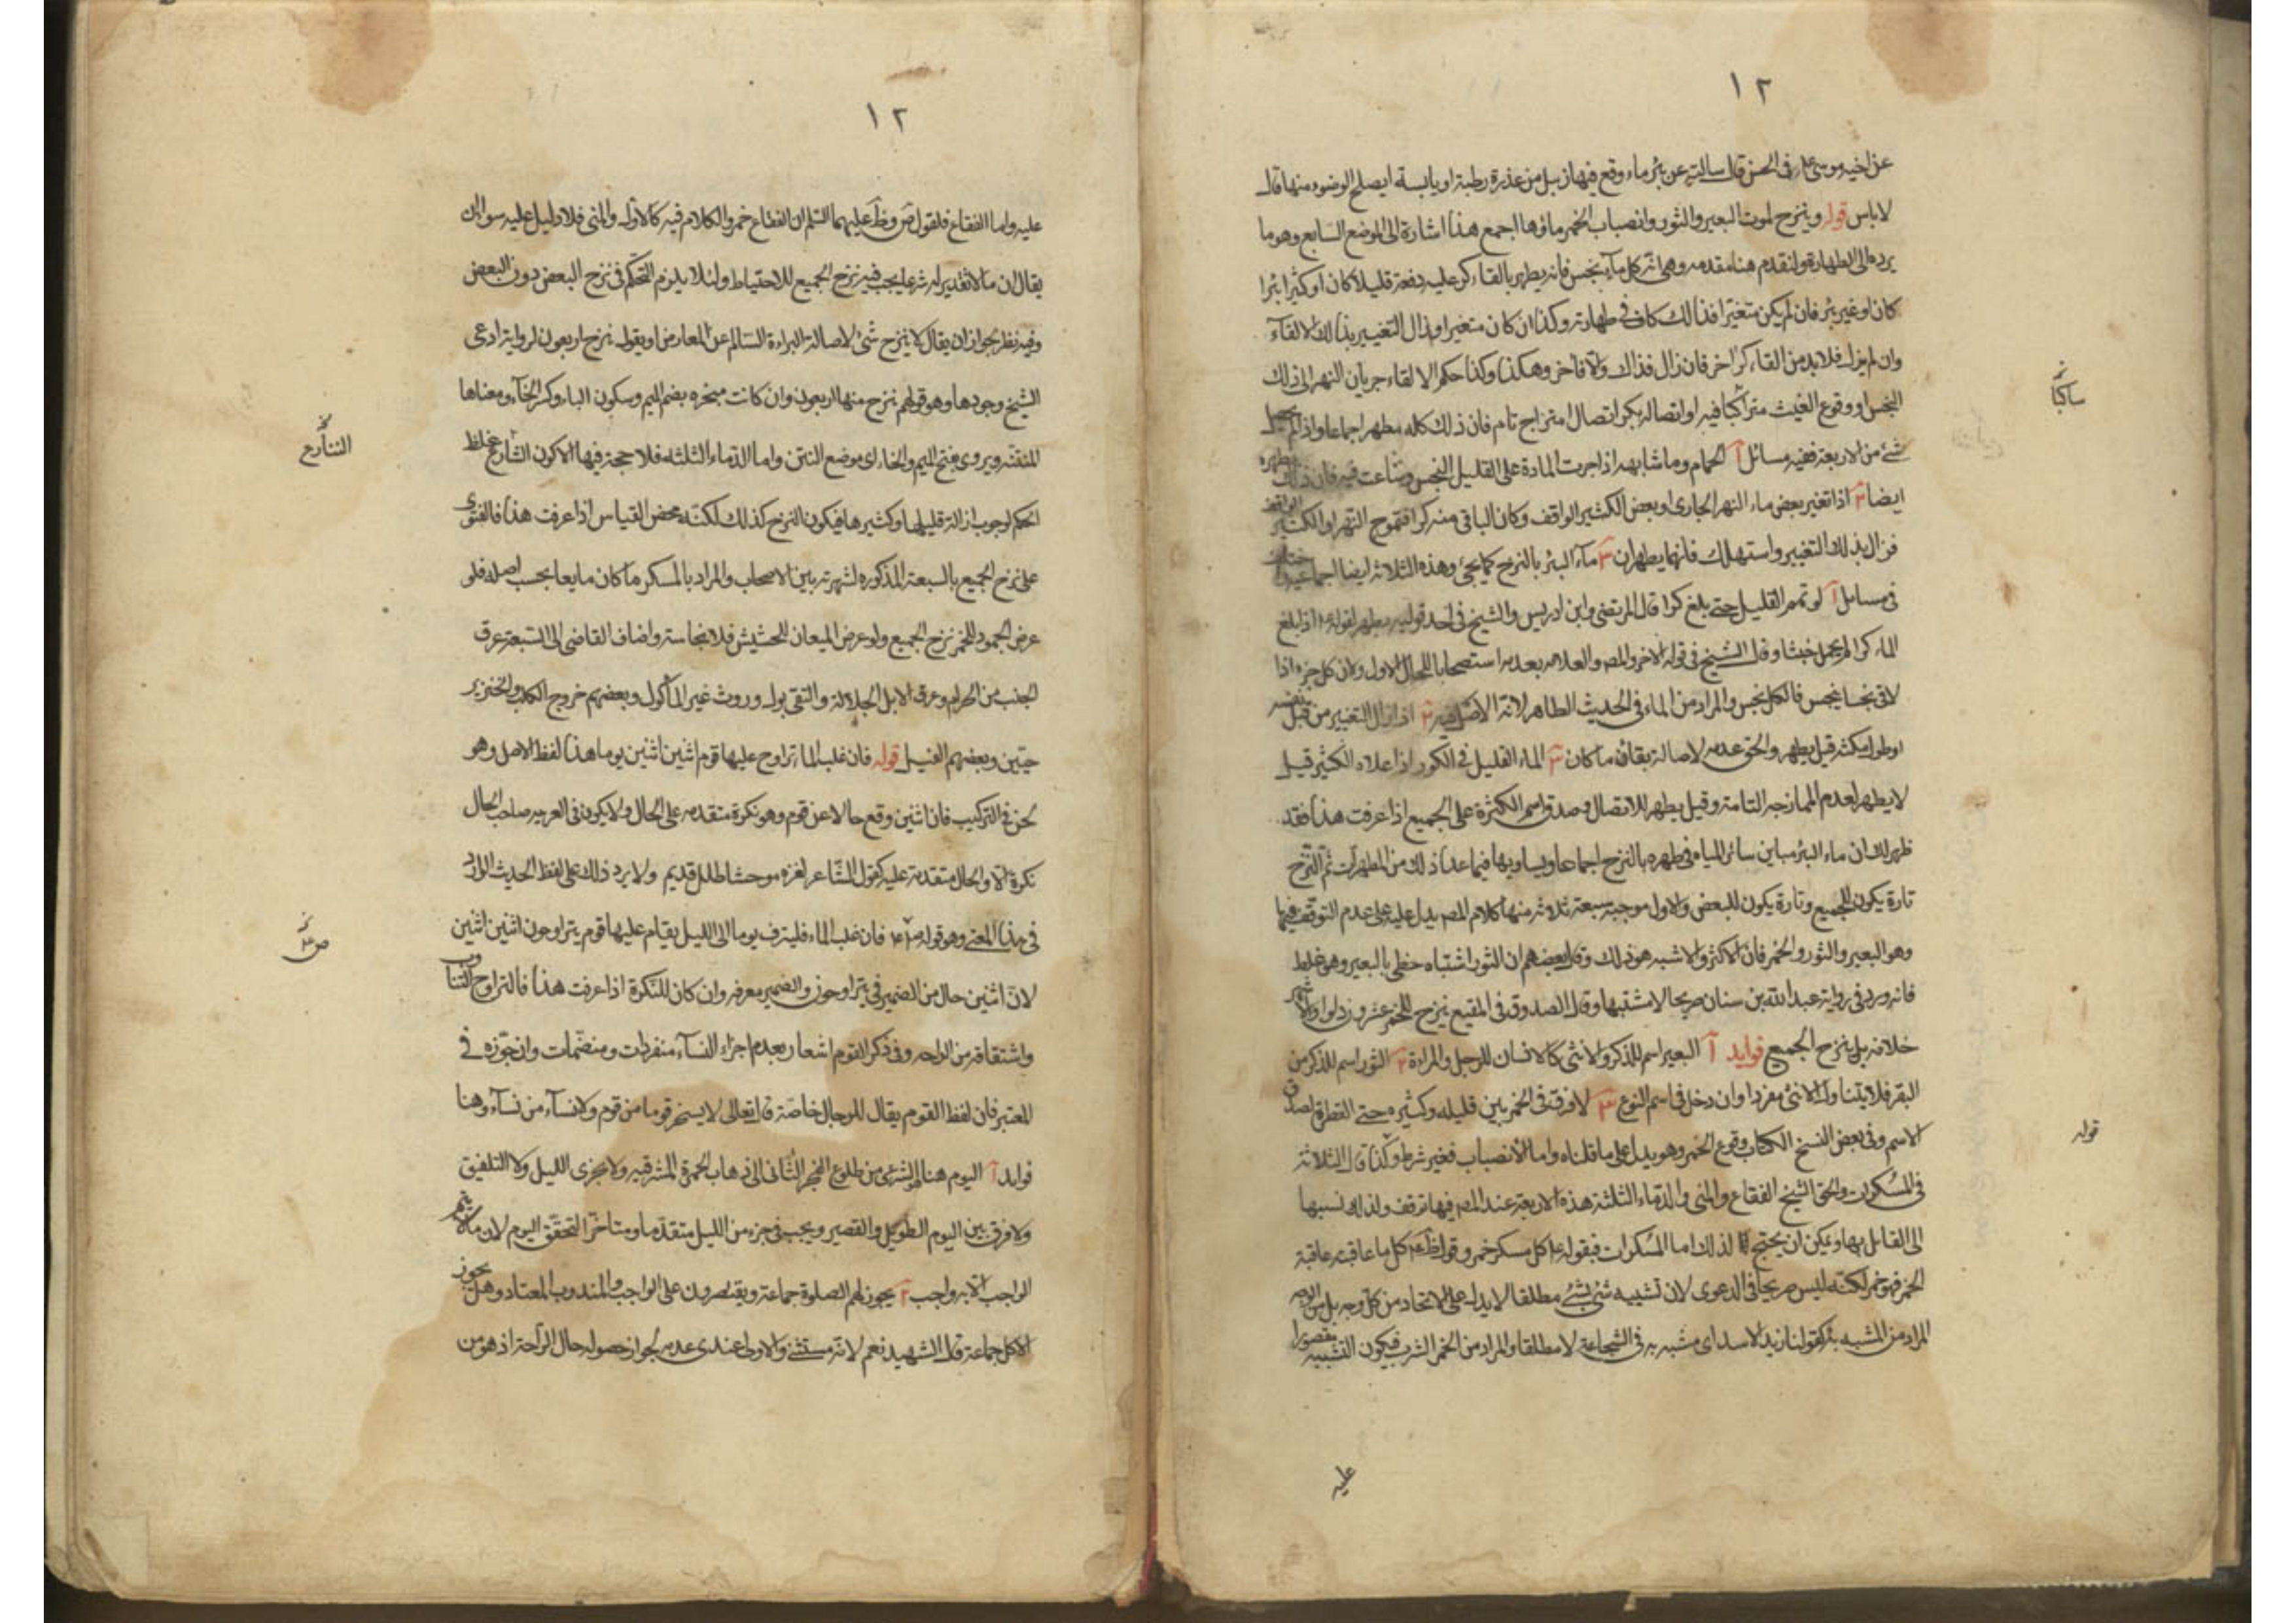 ١٢
عن اخيه موسى بن ابى الحسن قال سالته عن بئر ماء وقع فيها زبيل من عذرة رطبة او يابسة ايصلح الوضوء منها قال
لا باس قوله وينزح لموت البعير والثور وانصباب الخمر ماؤها اجمع هذا اشارة الى الموضع السابع وهو ما
يرده الى الطهارة ولنقدم هنا مقدمه وهى انه كل ماء نجس فانه يطهر بالقاء كر عليه دفعة قليلا كان او كثيرا بئرا
كان او غير بئر فان لم يكن متغيرا فذالك كاف فى طهارته وكذا ان كان متغيرا وزال التغيير بذالك الالقاء
وان لم يزل فلابد من القاء كر اخر فان زال فذاك والا فاخر وهكذا وكذا حكم الالقاء جريان النهر الى ذلك
النجس او وقوع الغيث متراكبا فيه او اتصاله بكر اتصال امتزاج تام فان ذلك كله مطهر اجماعا واذا لم يحصل
شئ من الاربعة ففيه مسائل آ الحمام وما شابهه اذا جرت المادة على القليل النجس وشاعت فيه فان ذلك يطهره
ايضا ٢ اذا تغير بعض ماء النهر الجارى او بعض الكثير الواقف وكان الباقى منه كرا فتموج النهر او الكثير الواقف
فزال بذلك التغيير واستهلك فانهما يطهران ٣ ماء البئر بالنزح كما يجئ وهذه الثلاثة ايضا اجماعية
فى مسائل آ لو تمم القليل حتى بلغ كرا قال المرتضى وابن ادريس والشيخ فى احد قوليه يطهر لقوله ع اذا بلغ
الماء كرا لم يحمل خبثا وقال الشيخ فى قوله الاخر والمص والعلامه بعدمه استصحابا للحال الاول ولان كل جزء اذا
لاقى نجسا ينجس فالكل نجس والمراد من الماء فى الحديث الطاهر لانه الاصل فيه ٢ اذا زال التغيير من قبل نفسه
او طول مكثه قيل يطهر والحق عدمه لاصالة بقاء ما كان ٣ الماء القليل فى الكوز اذا علاه الكثير قيل
لا يطهر لعدم الممازجه التامة وقيل يطهر للاتصال وصدق اسم الكثرة على الجميع اذا عرفت هذا فقد
ظهر لك ان ماء البئر مباين سائر المياه فى طهره بالنزح اجماعا ويساويها فيما عدا ذلك من المطهرات ثم النزح
تارة يكون للجميع وتارة يكون للبعض والاول موجبه سبعة ثلاثة منها كلام المص يدل عليه على عدم التوقف فيها
وهو البعير والثور والخمر فان الاكثر والاشبه هو ذلك وقال بعضهم ان الثور اشتباه خطى بالبعير وهو غلط
فانه ورد فى رواية عبد الله بن سنان صريحا لا مشتبها وقال الصدوق فى المقنع ينزح للخمر عشرون دلوا والاشهر
خلافه بل ينزح الجميع فوايد آ البعير اسم للذكر والانثى كالانسان للرجل والمراة ٢ الثور اسم للذكر من
البقر فلا يتناول الانثى مفردا وان دخل فى اسم النوع ٣ لا فرق فى الخمر بين قليله وكثيره حتى القطرة لصدق
الاسم وفى بعض النسخ الكتاب وقوع الخمر وهو يدل على ما قلناه واما الانصباب فغير شرط وكذا قال الثلاثة
فى المسكرات والحق الشيخ الفقاع والمنى والدماء الثلثة هذه الاربعة عند المص فيها توقف ولذلك نسبها
الى القائل بها ويمكن ان يحتج لذلك اما المسكرات فبقوله ع كل مسكر خمر وقول ظم ع كل ما عاقبته عاقبة
الخمر فهو خمر لكنه ليس صريحا فى الدعوى لان تشبيه شئ بشئ مطلقا لا يدل على الاتحاد من كل وجه بل من الوجه
المراد من المشبه به كقولنا زيد الاسد اى مشبه به فى الشجاعة لا مطلقا والمراد من الخمر الشرب فيكون التشبيه مقصورا
عليه
ساكبا
قوله
١٢
عليه واما الفقاع فلقول ض وظ عليهما السلم ان الفقاع خمر والكلام فيه كالاول والمنى فلا دليل عليه سوا ان
يقال ان ما لا تقدير له شرعا يجب فيه نزح الجميع للاحتياط ولئلا يلزم التحكم فى نزح البعض دون البعض
وفيه نظر لجواز ان يقال لا ينزح شئ لاصالة البراءة السالم عن المعارض او يقول ينزح اربعون لرواية ادعى
الشيخ وجودها وهو قولهم ينزح منها اربعون وان كانت مبخره بضم الميم وسكون الباء وكسر الخاء ومعناها
المنتنه ويروى بفتح الميم والخاء اى موضع النتن واما الدماء الثلثه فلا حجة فيها الا كون الشارع غلظ
الحكم لوجوب ازالة قليلها وكثيرها فيكون النزح كذلك لكنه محض القياس اذا عرفت هذا فالفتوى
على نزح الجميع بالسبعة المذكوره لشهرته بين الاصحاب والمراد بالمسكر ما كان مايعا بحسب اصله فلو
عرض الجمود للخمر نزح الجميع ولو عرض الميعان للحشيش فلا نجاسة واضاف القاضى الى السبعة عرق
الجنب من الحرام وعرق الابل الجلالة والتقى بول وروث غير المأكول وبعضهم خروج الكلب والخنزير
حيين وبعضهم الفيل قوله فان غلب الماء تراوح عليها قوم اثنين اثنين يوما هذا لفظ الاصل وهو
لحن فى التركيب فان اثنين وقع حالا عن قوم وهو نكرة متقدمه على الحال ولا يكون فى العربيه صاحب الحال
نكرة الا والحال متقدمة عليه كقول الشاعر لعزه موحشا طلل قديم ولا يرد ذلك على لفظ الحديث الوارد
فى هذا المعنى وهو قوله ص ع فان غلب الماء فلينزف يوما الى الليل يقام عليها قوم يتراوحون اثنين اثنين
لان اثنين حال من الضمير فى يتراوحون والضمير معرفه وان كان للنكرة اذا عرفت هذا فالتراوح التناوب
واشتقاقه من الراحه وفى ذكر القوم اشعار بعدم اجزاء النساء منفردات ومنضمات وان جوزه فى
المعتبر فان لفظ القوم يقال للرجال خاصة قال تعالى لا يسخر قوم من قوم ولا نساء من نساء وهنا
فوايد آ اليوم هنا هو الشرعى من طلوع الفجر الثانى الى ذهاب الحمرة المشرقيه ولا يجزى الليل ولا التلفيق
ولا فرق بين اليوم الطويل والقصير ويجب فى جزء من الليل متقدما ومتاخرا لتحقق اليوم لان ما لا يتم
الواجب الا به واجب ٢ يجوز لهم الصلوة جماعة ويقتصرون على الواجب والمندوب المعتاد وهل يجوز
الاكل جماعة قال الشهيد نعم لانه مستثنى والاولى عندى عدمه لجواز حصوله حال الراحة اذ هو من
التنازع
ص